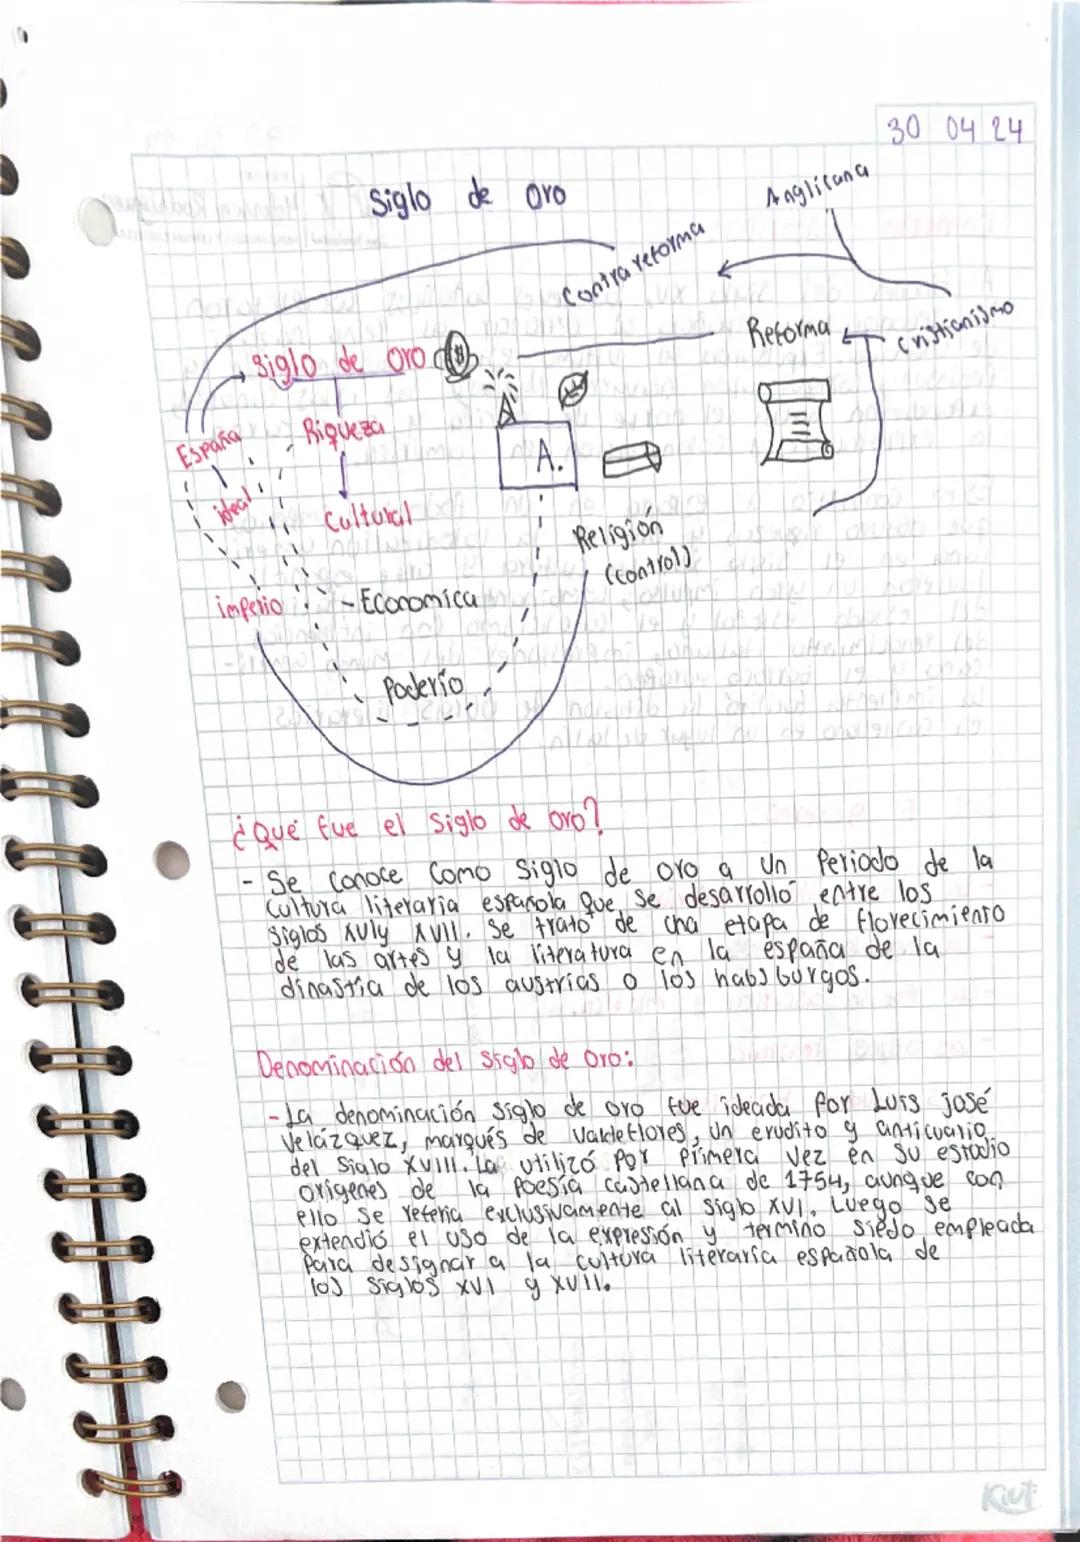 30 04 24
Siglo de oro
Anglicana
Contra reforma
Reforma
cristianismo
siglo de oro
España
Riqueza
ideal
Cultural
A.
Religión
(control)
imperio
- Economica
Poderío
¿Qué fue el siglo de oro?
- Se conoce como Siglo de oro a un Periodo de la
cultura literaria española que se desarrolló entre los
siglos XVI y XVII. Se trató de una etapa de florecimiento
de las artes y la literatura en la españa de la
dinastía de los austrias o los habsburgos.
Denominación del siglo de oro:
- La denominación siglo de oro fue ideada por Luis josé
Velázquez, marqués de Valdeflores, un erudito y anticuario
del Siglo XVIII. La utilizó por primera vez en su estudio
origenes de la poesía castellana de 1754, aunque con
ello se refería exclusivamente al siglo XVI. Luego se
extendió el uso de la expresión y termino siedo empleada
para designar a la cultura literaria española de
los siglos XVI y XVII.
Kiut